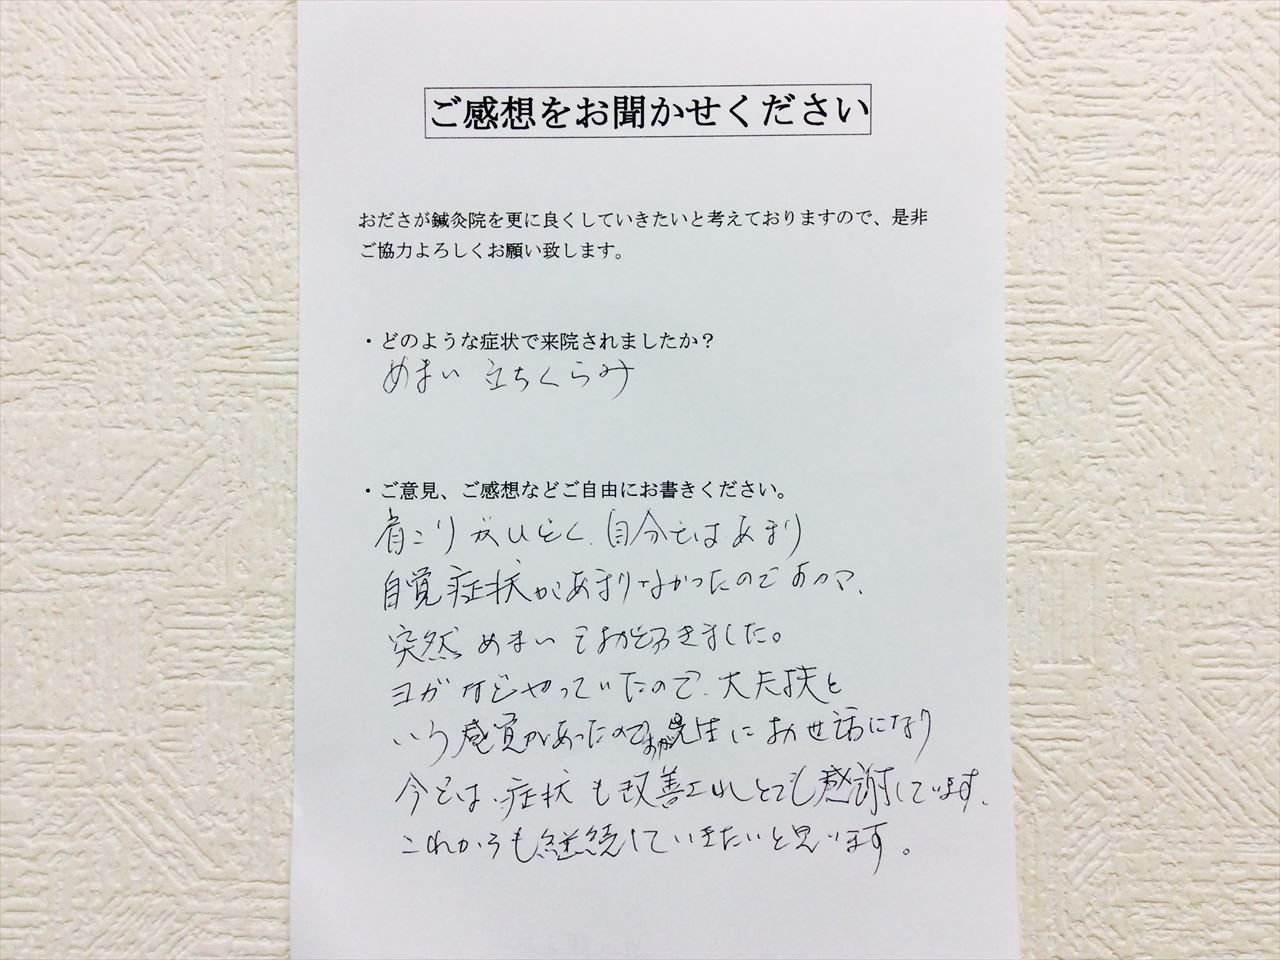 ご感想をお聞かせください
おださが鍼灸院を更に良くしていきたいと考えておりますので、是非
ご協力よろしくお願い致します。
・どのような症状で来院されましたか？
めまい 立ちくらみ
・ご意見、ご感想などご自由にお書きください。
肩こりがひどく、自分ではあまり
自覚症状があまりなかったのですが、
突然めまいでおどろきました。
ヨガなどやっていたので、大丈夫と
いう感覚があったのですが先生にお世話になり
今では、症状も改善されとても感謝しています。
これからも継続していきたいと思います。